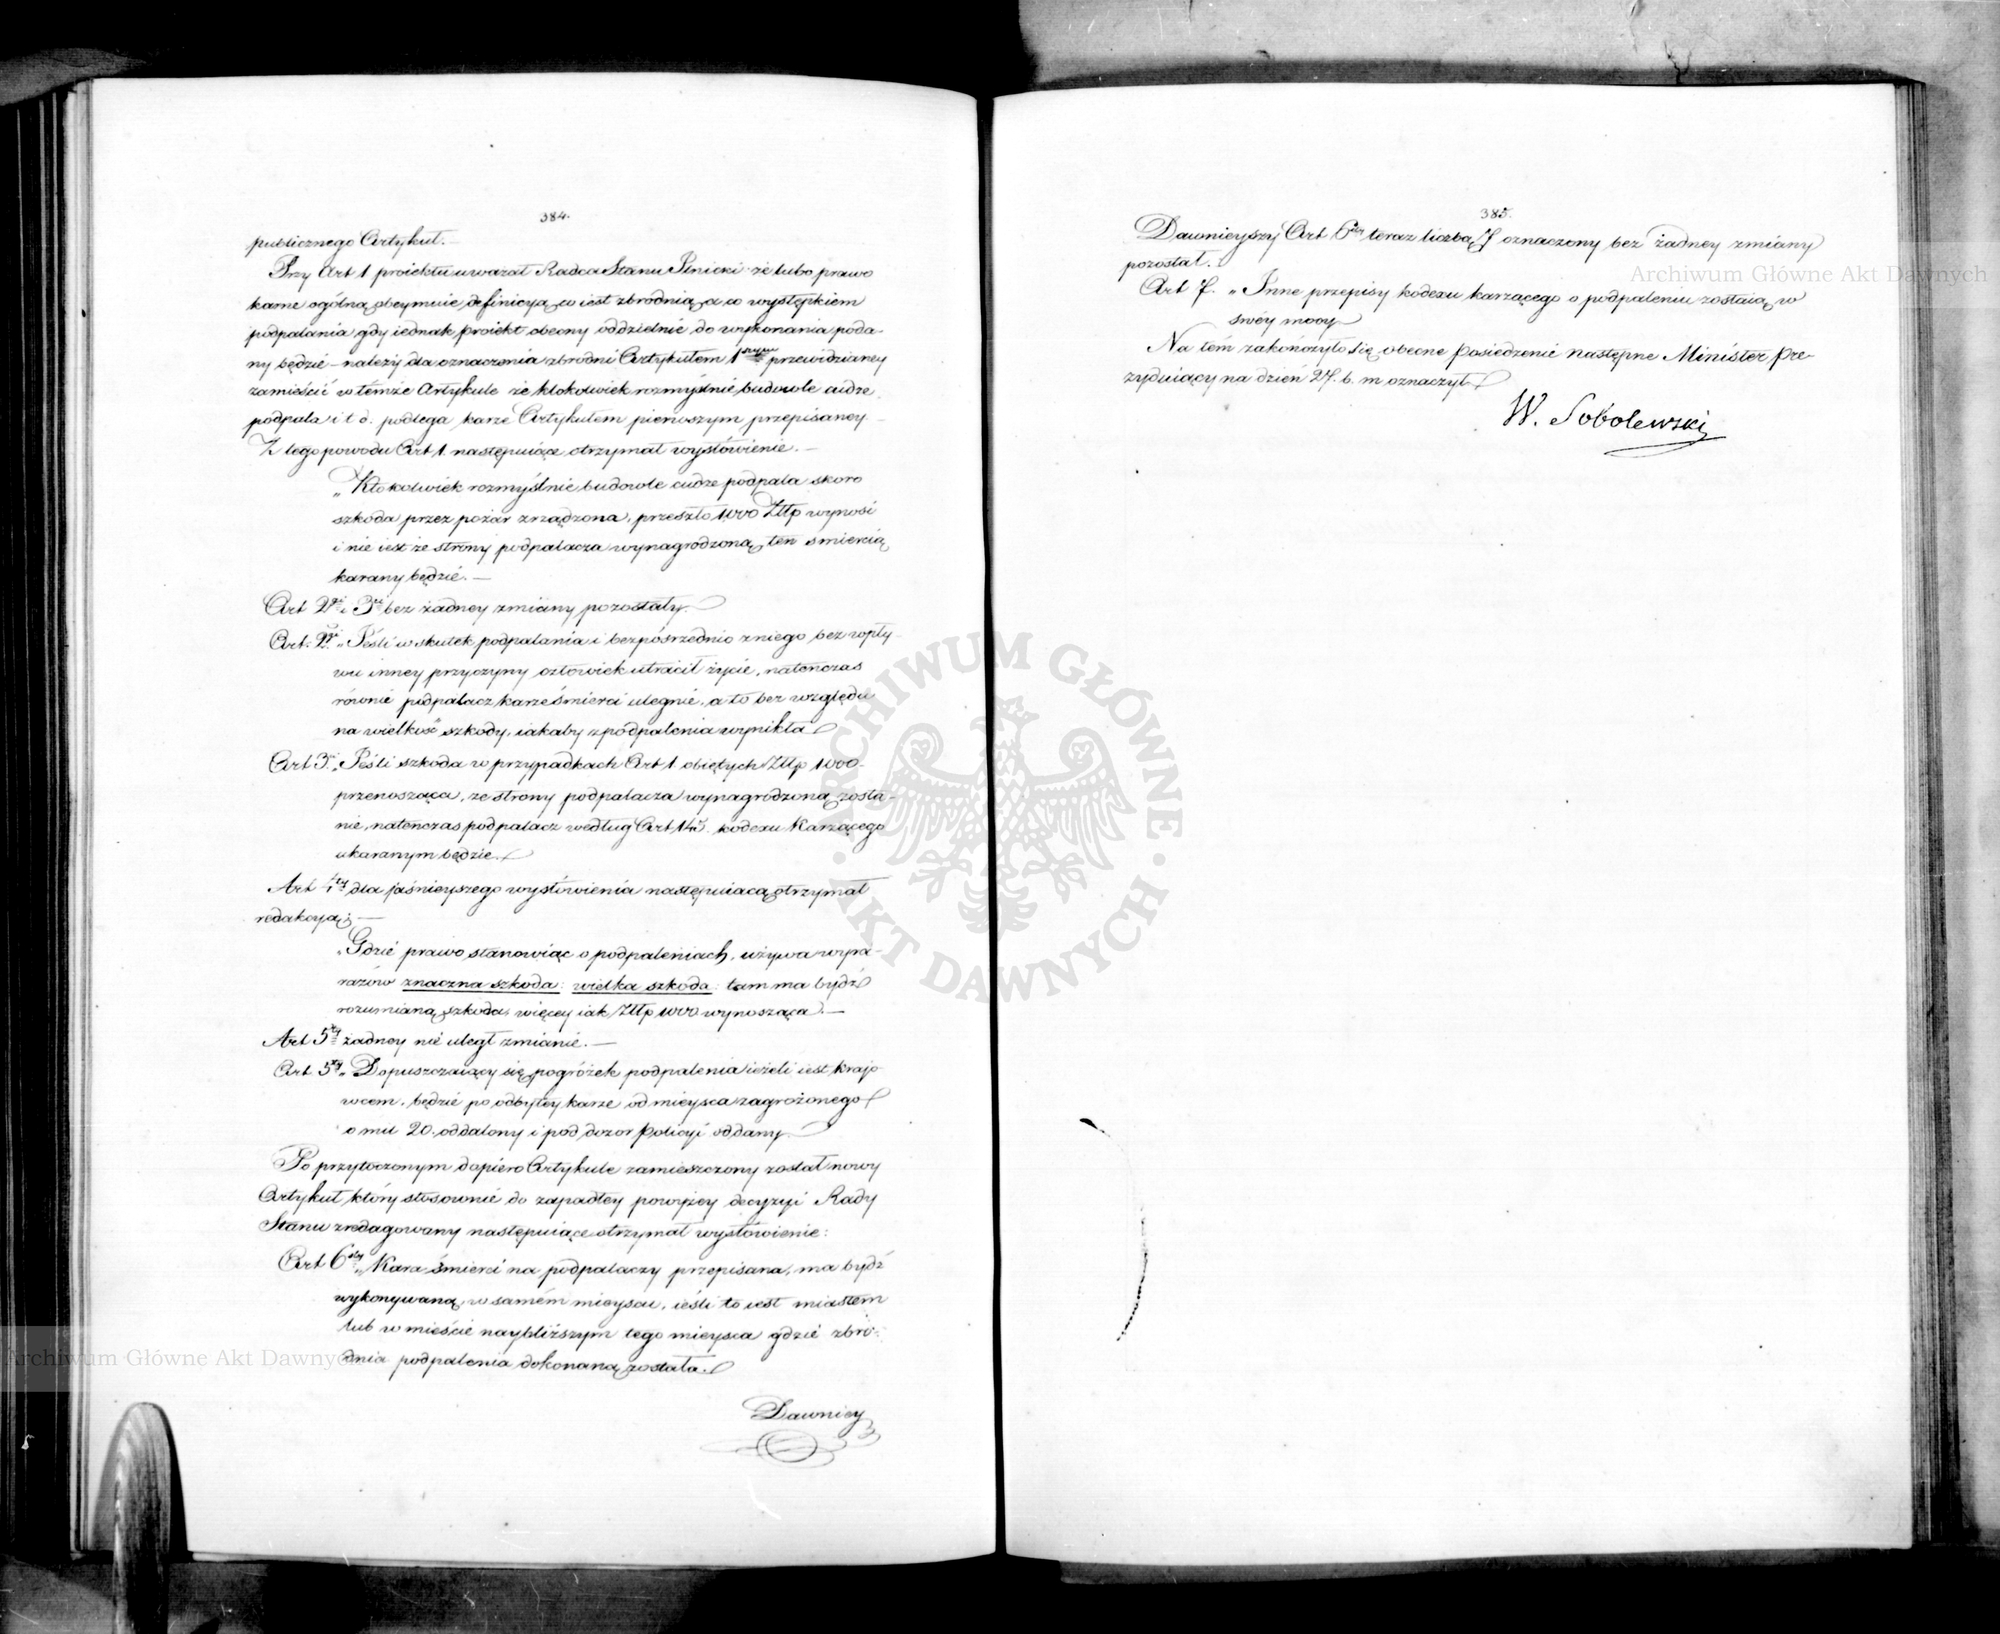 384.
publicznego Artykuł.—
Przy Art 1 proiektu uważał Radca Stanu Linicki że lubo prawo
karne ogólną obeymuie definicyą co iest zbrodnią a co występkiem
podpalania gdy iednak proiekt obecny oddzielnie do wykonania poda-
ny będzie – należy dla oznaczenia zbrodni Artykułem 1szym przewidzianey
zamieścić w temże Artykule że ktokolwiek rozmyślnie budowle cudze
podpala i t d. podlega karze Artykułem pierwszym przepisaney –
Z tego powodu Art 1. następuiące otrzymał wysłowienie. —
„Ktokolwiek rozmyślnie budowle cudze podpala skoro
szkoda przez pożar zrządzona, przeszło 1000 Złłp wynosi
i nie iest ze strony podpalacza wynagrodzoną, ten śmiercią
karany będzie. —
Art 2gi i 3ci bez żadney zmiany pozostały.
Art. 2gi „Jeśli w skutek podpalania i bezpośrednio z niego bez wpły-
wu inney przyczyny człowiek utracił życie, natenczas
równie podpalacz karze śmierci ulegnie, a to bez względu
na wielkość szkody, iakaby z podpalenia wynikła
Art 3ci „Jeśli szkoda w przypadkach Art 1. obiętych Złłp 1000
przenosząca, ze strony podpalacza wynagrodzoną zosta-
nie, natenczas podpalacz według Art 145. kodexu Karzącego
ukaranym będzie.
Art 4ty dla jaśnieyszego wysłowienia następuiacą otrzymał
redakcyą; —
„Gdzie prawo stanowiąc o podpaleniach, używa wyra-
razów znaczna szkoda: wielka szkoda: tam ma bydź
rozumianą szkoda, więcey iak Złłp 1000 wynosząca. —
Art 5ty żadney nie uległ zmianie. —
Art 5ty „Dopuszczaiący się pogróżek podpalenia ieżeli iest krajo-
wcem, będzie po odbytey karze od mieysca zagrożonego
o mil 20. oddalony i pod dozor Policyi oddany.
Po przytoczonym dopiero Artykule zamieszczony został nowy
Artykuł który stosownie do zapadłey powyżey decyzyi Rady
Stanu zredagowany następuiące otrzymał wysłowienie:
Art 6sty „Kara śmierci na podpalaczy przepisana, ma bydź
wykonywaną w samém mieyscu, ieśli to iest miastem
lub w mieście naybliższym tego mieysca gdzie zbro-
dnia podpalenia dokonaną została.
Dawniey
385.
Dawnieyszy Art 6sty teraz liczbą 7 oznaczony bez żadney zmiany
pozostał.
Art 7. „Inne przepisy kodexu karzącego o podpaleniu zostaią w
swéy mocy
Na tém zakończyło się obecne Posiedzenie następne Minister Pre-
zyduiący na dzień 27. b. m oznaczył.
W. Sobolewski
ARCHIWUM GŁÓWNE
AKT DAWNYCH
Archiwum Główne Akt Dawnych
Archiwum Główne Akt Dawnych